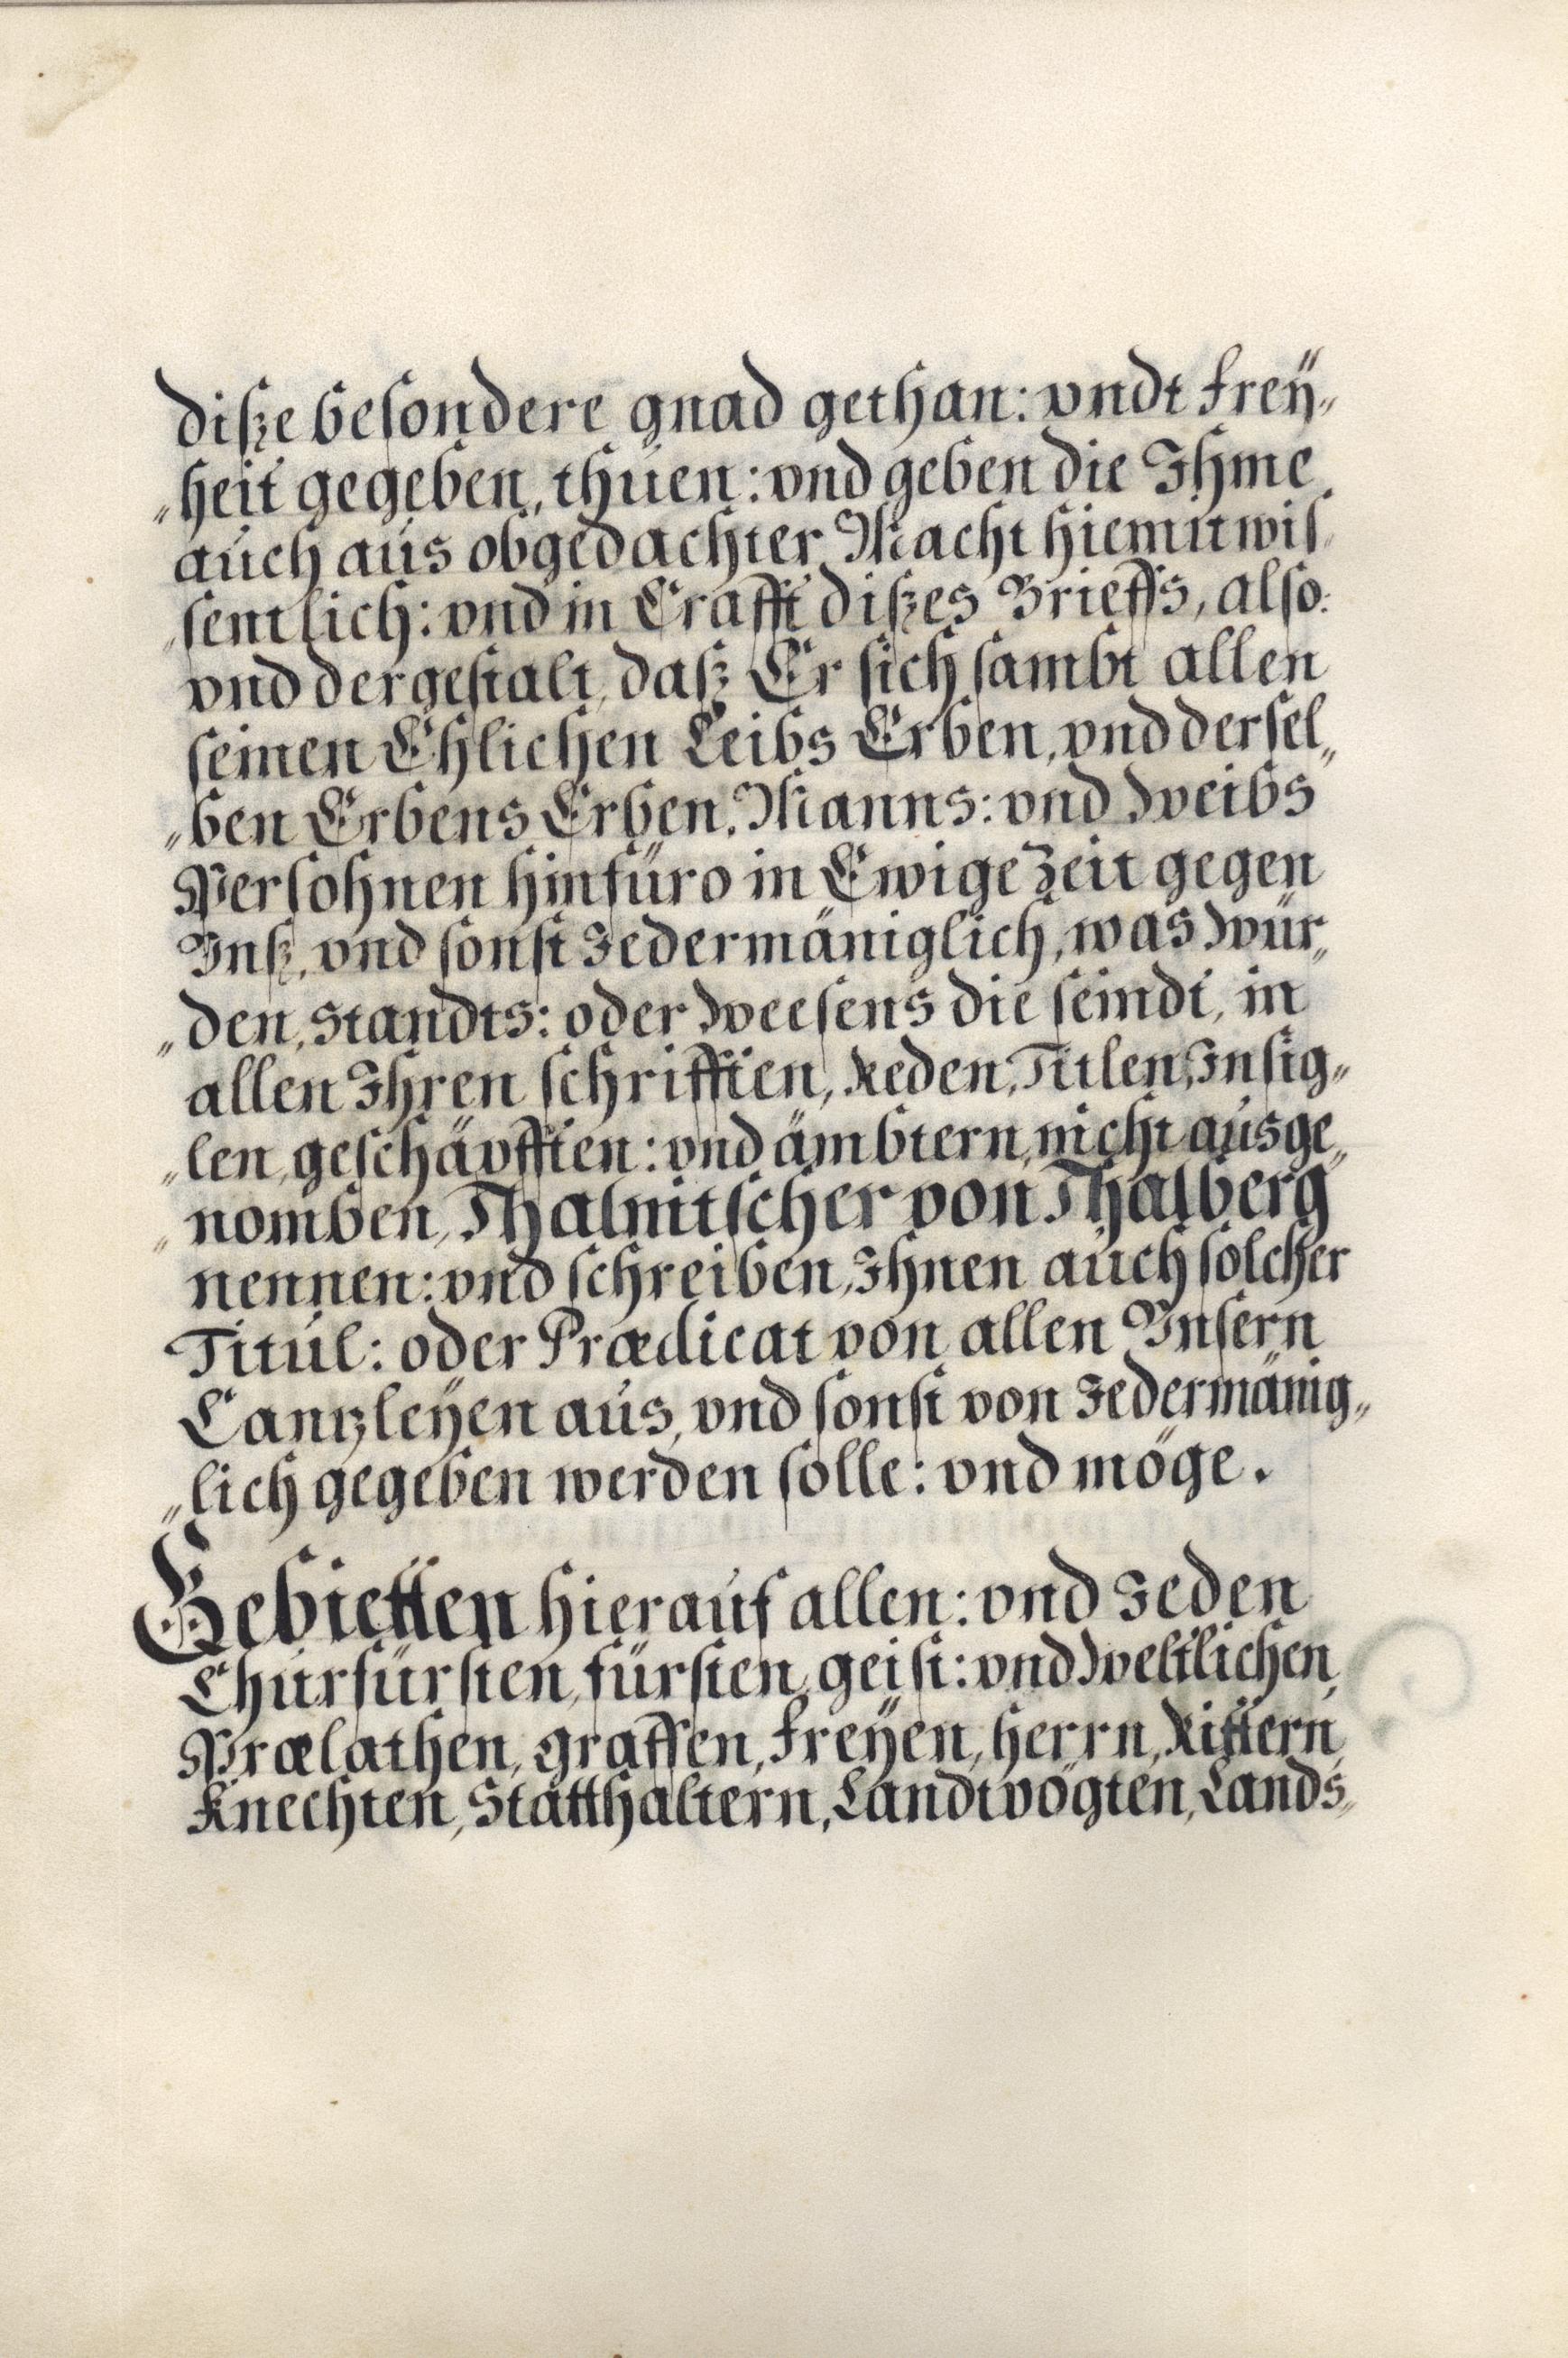 diße besondere gnad gethan: vndt frey„
„heit gegeben, thuen: vnd geben die Ihme
auch aus obgedachter Macht hiemit wis„
„sentlich: vnd in Crafft dißes Brieffs, also:
vnd dergestalt, daß Er sich sambt allen
seinen Ehlichen Leibs Erben, vnd dersel„
„ben Erbens Erben, Manns: vnd Weibs
Persohnen hinfüro in Ewige Zeit gegen
Vnß, vnd sonst Jedermäniglich, was Wür„
„den, Standts: oder Weesens die seindt, in
allen Ihren schrifften, Reden, Titlen, Insig„
„len, geschäfften: vnd ämbtern, nicht ausge„
„nomben, Thalnitscher von Thalberg
nennen: vnd schreiben, Ihnen auch solcher
Titul: oder Prædicat von allen Vnsern
Canzleyen aus, vnd sonst von Jedermänig„
„lich gegeben werden solle: vnd möge.
Gebietten hierauf allen: vnd Jeden
Churfürsten, fürsten, geist: vnd Weltlichen,
Prælathen, graffen, freyen, herrn, Rittern,
Knechten, Statthaltern, Landtvögten, Lands„